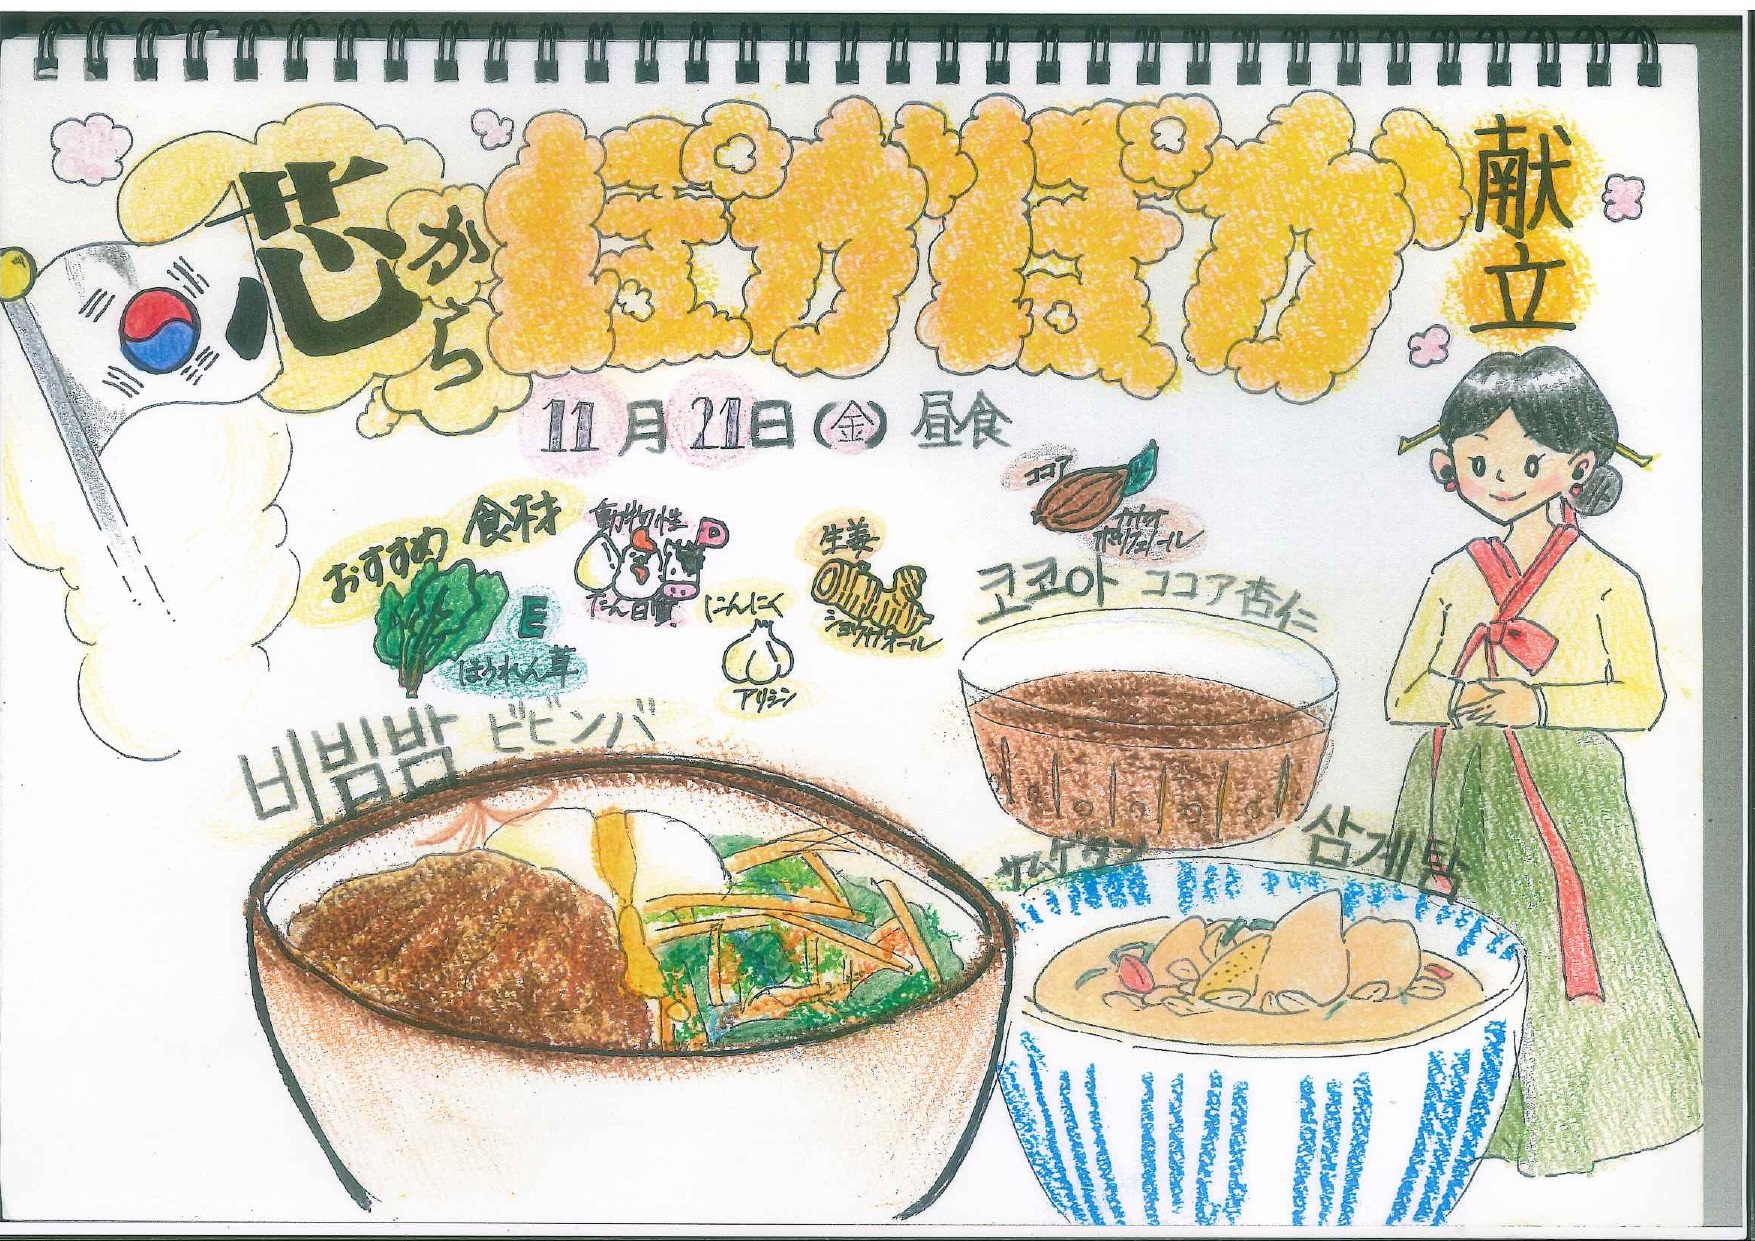 芯から
ぽかぽか
献立
11月21日(金) 昼食
おすすめ 食材
E
ほうれん草
動物性
たん白質
にんにく
アリシン
生姜
ショウガオール
ココア
カカオ
ポリフェノール
코코아 ココア杏仁
비빔밥 ビビンバ
サムゲタン 삼계탕